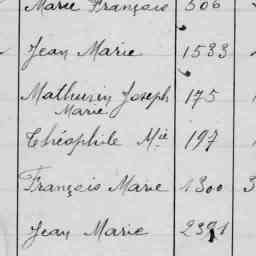 Marie François 506
Jean Marie 1533
Mathurin Joseph 175
Marie
Théophile Mie 197
François Marie 1300 3
Jean Marie 2371